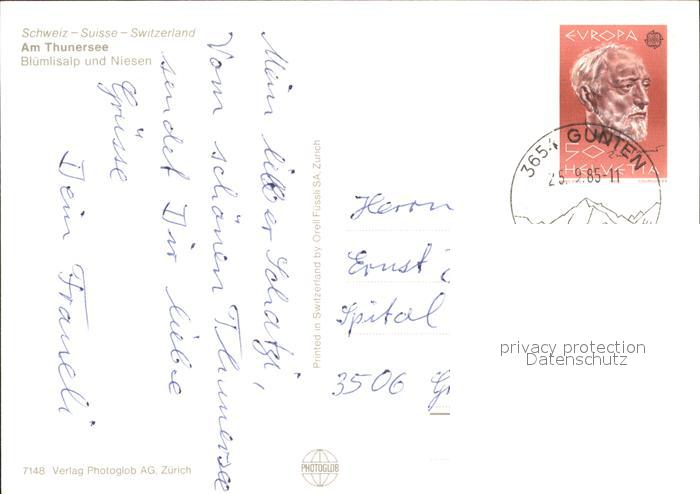 Schweiz – Suisse – Switzerland
Am Thunersee
Blümlisalp und Niesen
Mein lieber Schatzi,
Vom schönen Thunersee
sendet Dir liebe
Grüsse
Dein Franeli
7148 Verlag Photoglob AG, Zürich
Printed in Switzerland by Orell Füssli SA, Zürich
PHOTOGLOB
EVROPA
50
HELVETIA
3654 GUNTEN
25.9.85-11
Herrn
Ernst
Spital
3506 G
privacy protection
Datenschutz